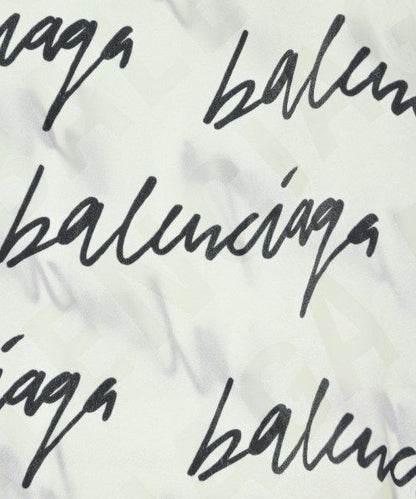 iaga balen
balenciaga
ciaga balenc